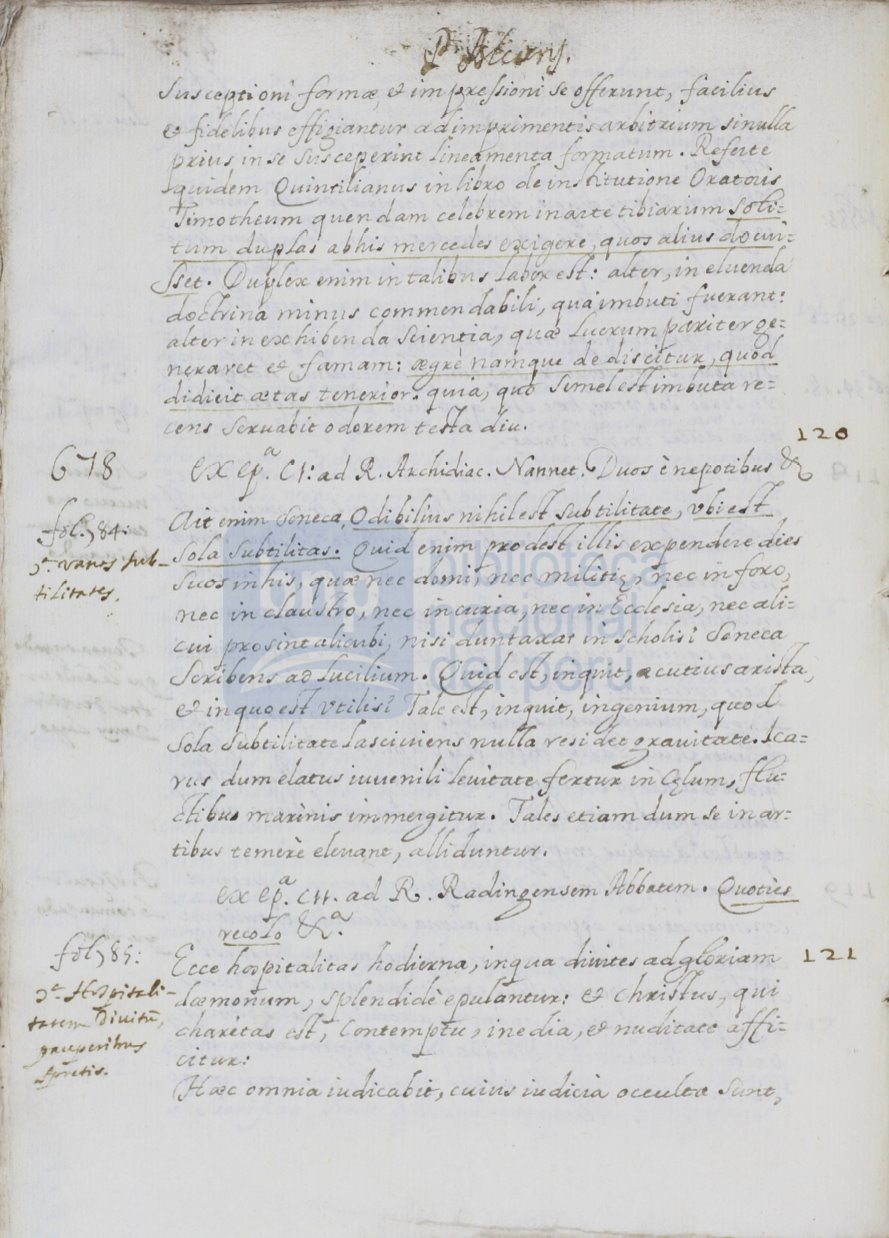 susceptioni formæ, et impressioni se offerunt, facilius
et fidelibus effigiantur ad imprimentis arbitrium si nulla
prius in se susceperint lineamenta formatum. Referte
quidem Quintilianus in libro de institutione Oratoris
Timotheum quendam celebrem in arte tibiarium soli-
tum duplas ab his mercedes exigere, quos alius docui-
sset. Duplex enim in talibus labor est: alter, in eluenda
doctrina minus commendabili, qua imbuti fuerant:
alter in exhibenda scientia, quæ lucrum pariter ge-
neraret et famam: ægrè namque dediscitur, quod
didicit ætas tenerior: quia, quo semel est imbuta re-
cens servabit odorem testa diu.
120
678
ex epª. CI: ad R. Archidiac. Nannet. Duos è nepotibus &
fol. 784:
cª. vanas sub-
tilitates.
Ait enim Seneca, Odibilius nihil est subtilitate, vbi est
sola subtilitas. Quid enim prodest illis expendere dies
suos in his, quæ nec domi, nec militię, nec in foro,
nec in claustro, nec in curia, nec in Ecclesia, nec ali-
cui prosint alicubi, nisi duntaxat in scholis? Seneca
scribens ad Lucilium. Quid est, inquit, acutius arista,
et in quo est vtilis? Tale est, inquit, ingenium, quod
sola subtilitate lasciviens nulla residet gravitate. Ica-
rus dum elatus iuvenili levitate fertur in Cęlum, flu-
ctibus marinis immergitur. Tales etiam dum se in ar-
tibus temerè elevant, alliduntur.
ex epª. CII. ad R. Radingensem Abbatem. Quoties
recolo &ª.
fol. 785:
cª. Hospitali-
tatem Divitũ,
pauperibus
spretis.
121
Ecce hospitalitas hodierna, in qua divites ad gloriam
dæmonum, splendidè epulantur: et Christus, qui
charitas est, contemptu, inedia, et nuditate affi-
citur:
Hæc omnia iudicabit, cuius iudicia occulta sunt,
biblioteca
nacional
del perú